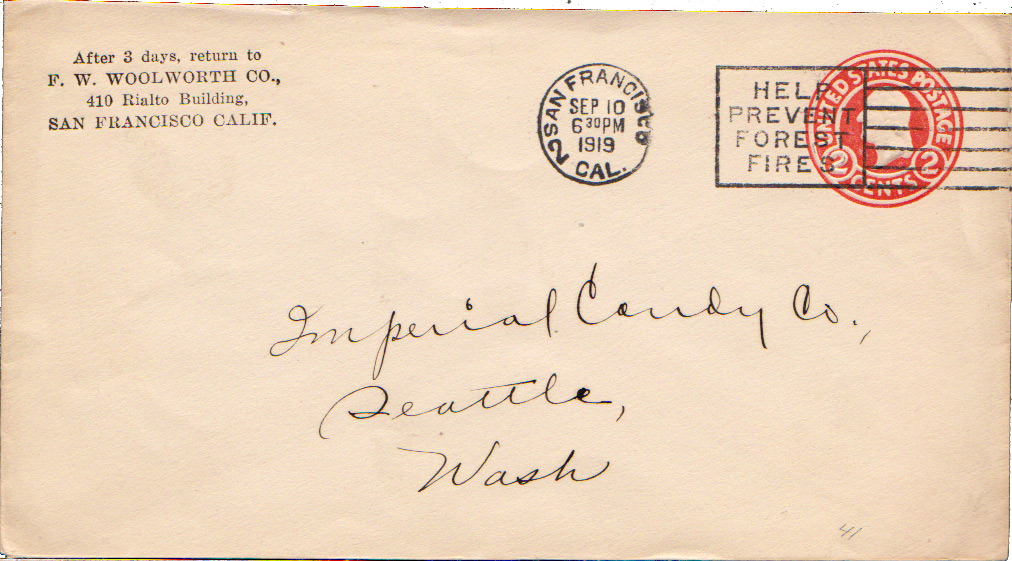 After 3 days, return to
F. W. WOOLWORTH CO.,
410 Rialto Building,
SAN FRANCISCO CALIF.
SAN FRANCISCO
2
SEP 10
6 30 PM
1919
CAL.
HELP
PREVENT
FOREST
FIRES
UNITED STATES POSTAGE
2 2
CENTS
Imperial Candy Co.,
Seattle,
Wash
41